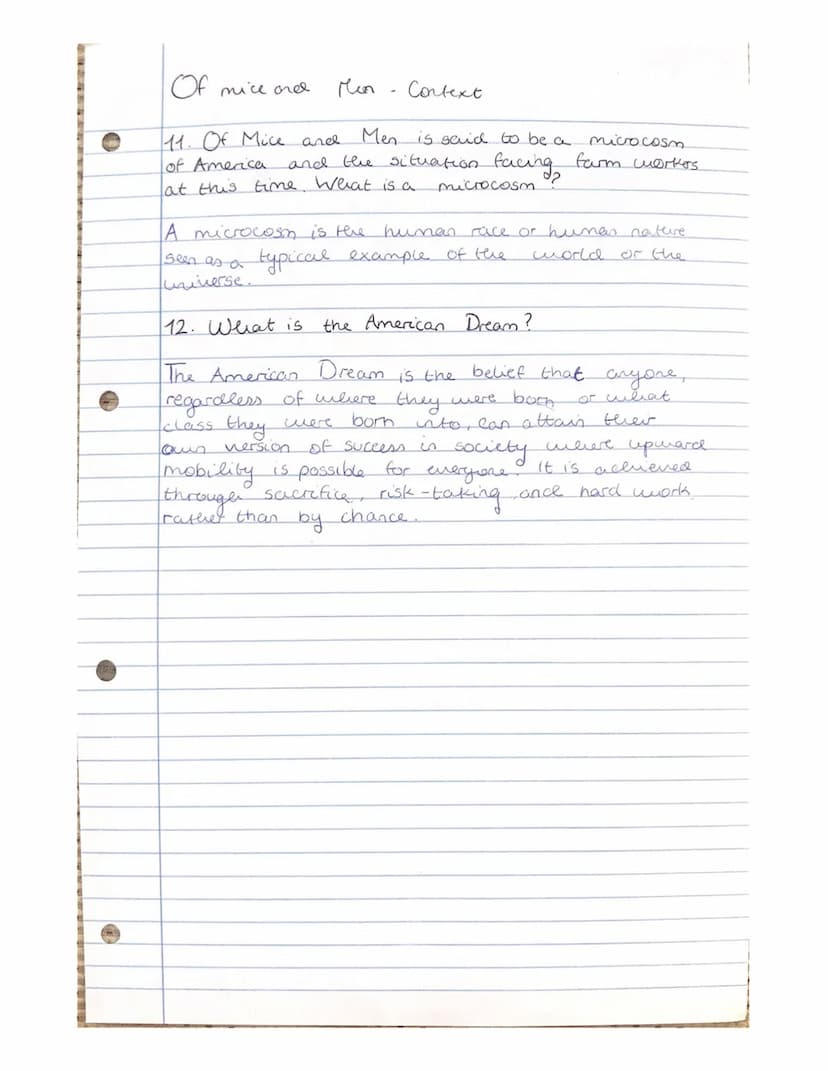 Of mice and Men - Context
11. Of Mice and Men is said to be a microcosm
of America and the situation facing farm workers
at this time. What is a microcosm?
A microcosm is the human race or human nature
seen as a typical example of the world or the
universe.
12. What is the American Dream?
The American Dream is the belief that anyone,
regardless of where they were born or what
class they were born into, can attain their
own version of success in society where upward
mobility is possible for everyone. It is achieved
through sacrifice, risk-taking and hard work
rather than by chance.